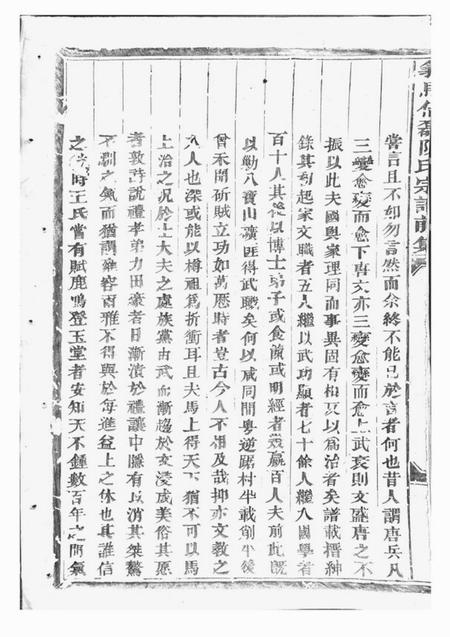 陳氏宗譜前集
嘗言且不却勿言然而余終不能已於言者何也昔人謂唐兵凡
三變愈變而愈下唐文亦三變愈變而愈上武衰則文盛唐之不
振以此夫國與家理同而事異固有相反以為治者矣譜載搢紳
錄其初起家文職者五人繼以武功顯者七十餘人繼入國學者
百十人其後以博士弟子或食餼或明經者幾贏百人夫前此既
以勦八寶山礦匪得武職矣何以咸同間粵逆踞村半載創平後
曾未聞斬賊立功如萬歷時者豈古今人不相及哉抑亦文教之
入人也深或能以樽俎為折衝耳且夫馬上得天下猶不可以馬
上治之况於士大夫之處族黨由武而漸趨於文浸成美俗其愿
者敦詩說禮孝弟力田豪者日漸漬於禮讓中勝有以消其桀驁
不馴之氣而猶謂雍容爾雅不得與於每進益上之休也其誰信
之 時王氏嘗有賦鹿鳴登玉堂者安知天不鍾數百年之間氣